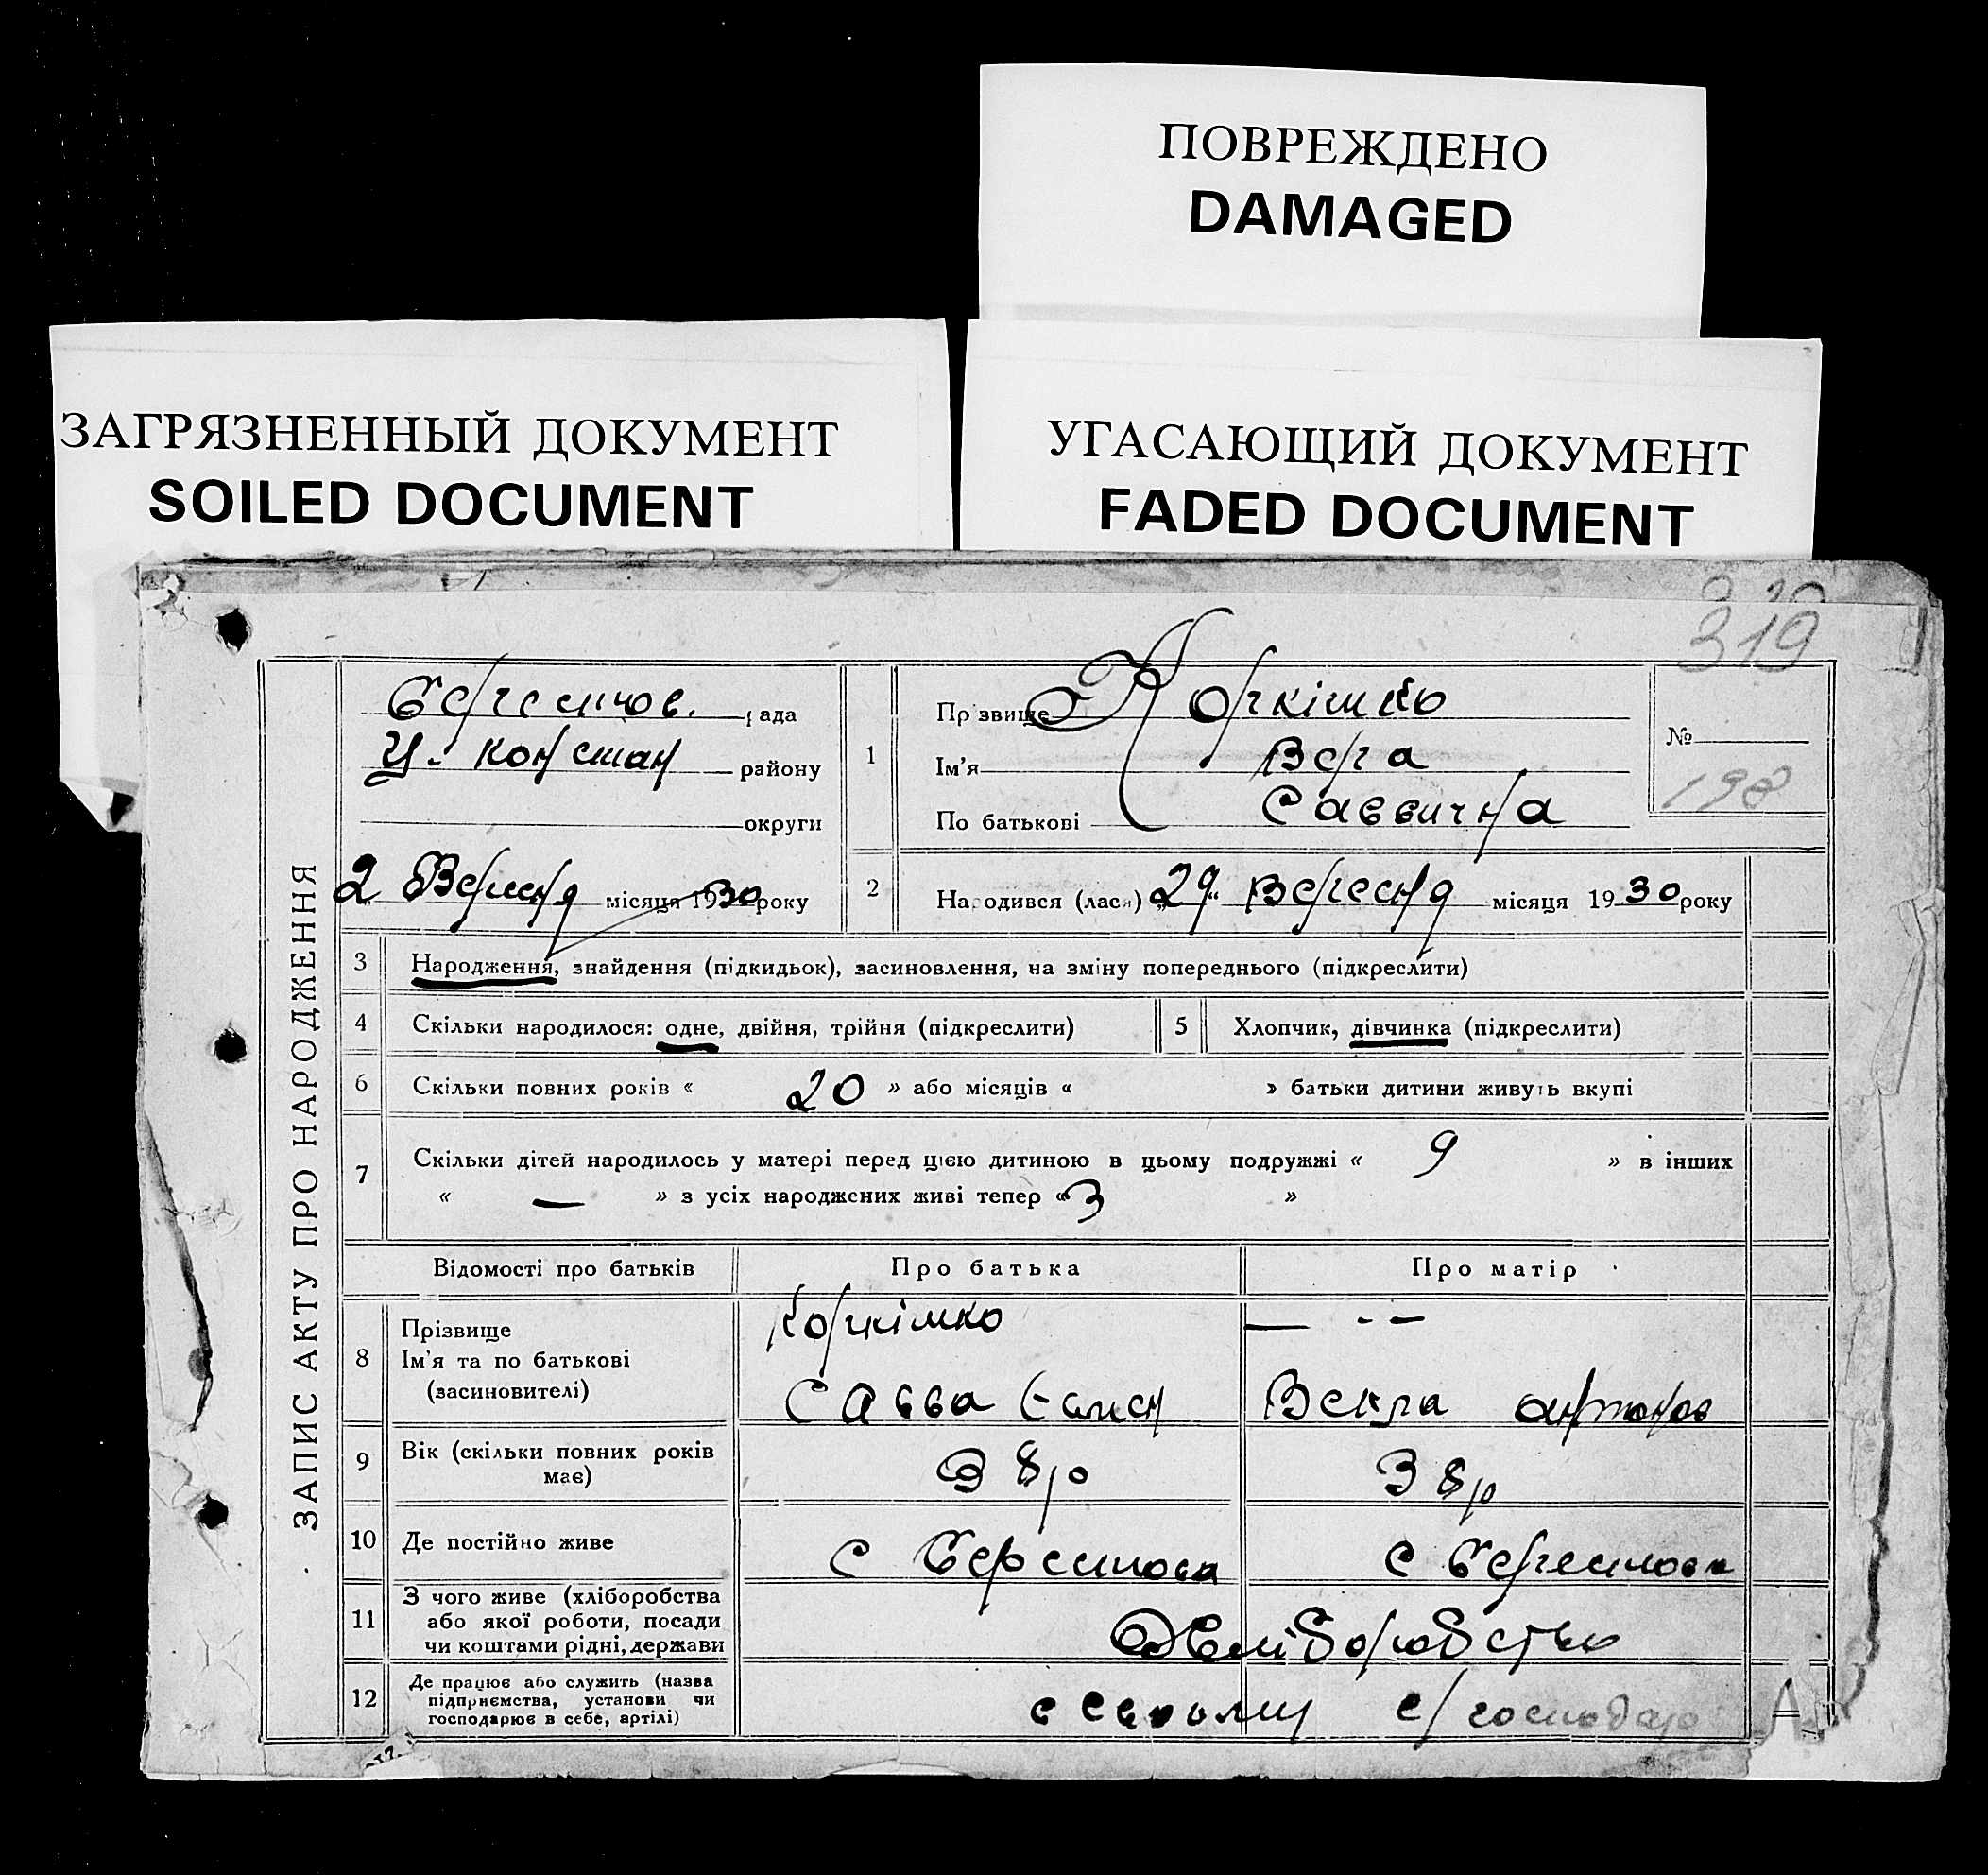 ПОВРЕЖДЕНО
DAMAGED
ЗАГРЯЗНЕННЫЙ ДОКУМЕНТ
SOILED DOCUMENT
УГАСАЮЩИЙ ДОКУМЕНТ
FADED DOCUMENT
319
ЗАПИС АКТУ ПРО НАРОДЖЕННЯ
рада
району
округи
2 місяця 1930 року
1
Прізвище
Ім'я Вера
По батькові Саввична
№
198
2 Народився (лася) „29“ Вересня місяця 1930 року
3 Народження, знайдення (підкидьок), засиновлення, на зміну попереднього (підкреслити)
4 Скільки народилося: одне, двійня, трійня (підкреслити)
5 Хлопчик, дівчинка (підкреслити)
6 Скільки повних років « 20 » або місяців « » батьки дитини живуть вкупі
7 Скільки дітей народилось у матері перед цією дитиною в цьому подружжі « 9 » в інших
« — » з усіх народжених живі тепер « 3 »
Відомості про батьків Про батька Про матір
8 Прізвище — - —
Ім'я та по батькові
(засиновителі) Савва Векла
9 Вік (скільки повних років
має) 38 р 38 р
10 Де постійно живе с с
11 З чого живе (хліборобства
або якої роботи, посади
чи коштами рідні, держави
12 Де працює або служить (назва
підприємства, установи чи
господарює в себе, артілі)
в своему с/господар